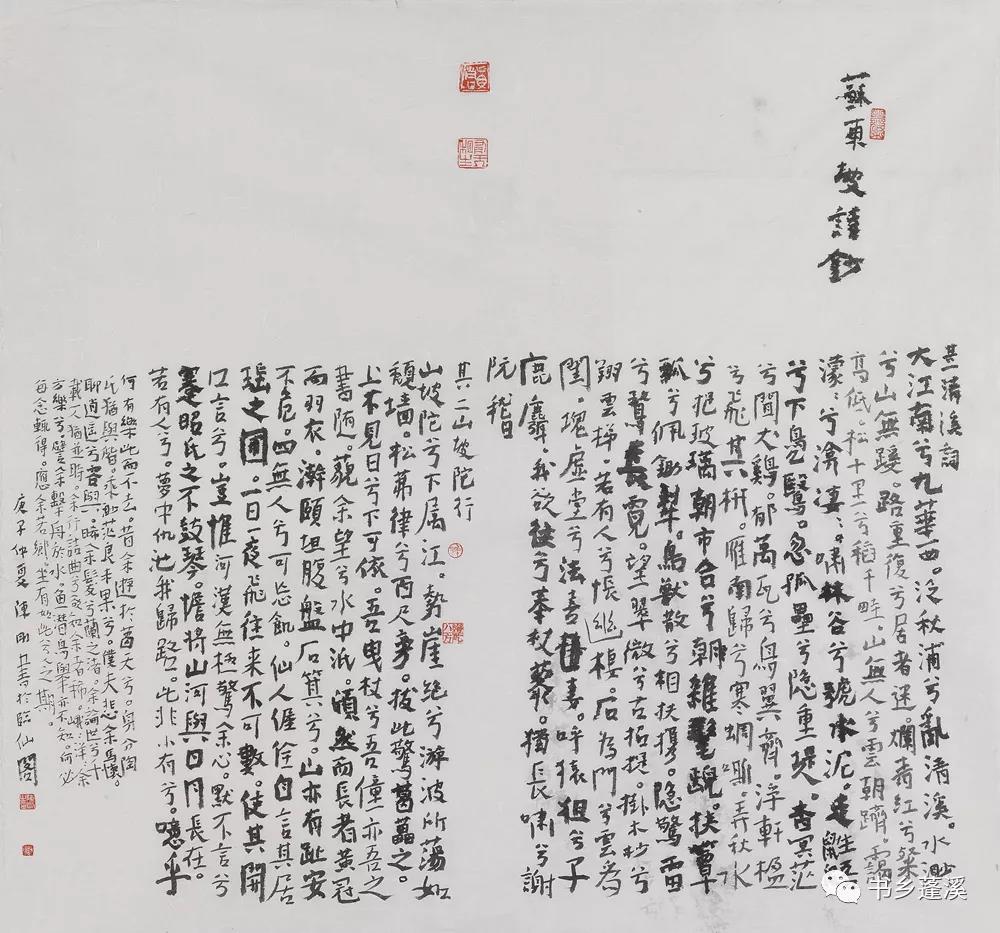 蘇東坡詩鈔
其一清溪詞
大江南兮九華西。泛秋浦兮亂清溪。水渺
兮山無蹊。路重復兮居者迷。爛青紅兮粲
高低。松十里兮稻千畦。山無人兮雲朝躋。靄
濛〻兮渰凄〻。嘯林谷兮號水泥。走鼪鼯
兮下鳧鷖。忽孤壘兮隱重堤。杳冥茫
兮聞犬鷄。郁萬瓦兮鳥翼齊。浮軒楹
兮飛其枅。雁南歸兮寒蜩嘶。弄秋水
兮挹玻璃。朝市合兮雜髦齯。扶蕈
瓢兮佩鋤犁。鳥獸散兮相扶攜。隱驚雷
兮鶩長霓。望翠微兮古招提。掛木杪兮
翔雲梯。若有人兮悵幽棲。石為門兮雲為
閨。塊虛堂兮法喜妻。呼猿狙兮子
鹿麛。我欲往兮奉杖藜。獨長嘯兮謝
阮嵇
其二山坡陀行
山坡陀兮下属江。勢崖絕兮游波所蕩如
頹墙。松茀律兮百尺旁。拔此驚葛藟之。
上不見日兮下可依。吾曳杖兮吾僮亦吾之
書隨。藐余望兮水中沚。頎然而長者黃冠
而羽衣。澣頤坦腹盤石箕兮。山亦有趾安
不危。四無人兮可忘飢。仙人偓佺自言其居
瑶之圃。一日一夜飛往來不可數。使其開
口言兮。豈惟河漢無極驚余心。默不言兮
蹇昭氏之不鼓琴。憺將山河與日月長在。
若有人兮。夢中仇池我歸路。此非小有兮。噫乎
何有樂此而不去。昔余遊於葛天兮。身分陶
氏猶與偕。乘渺茫良未果兮。僕夫悲余馬懷。
聊逍遥兮容與。晞余髮兮蘭之渚。余論世兮千
載一人猶並時。余行詰曲兮欲知余者稀。峨〻洋〻余
方樂兮。譬余繫舟於水。魚潛鳥舉亦不知。何必
每念輒得。應余若響。坐有如此兮人之期。
庚子仲夏陳剛又書於臨仙閣
书乡蓬溪